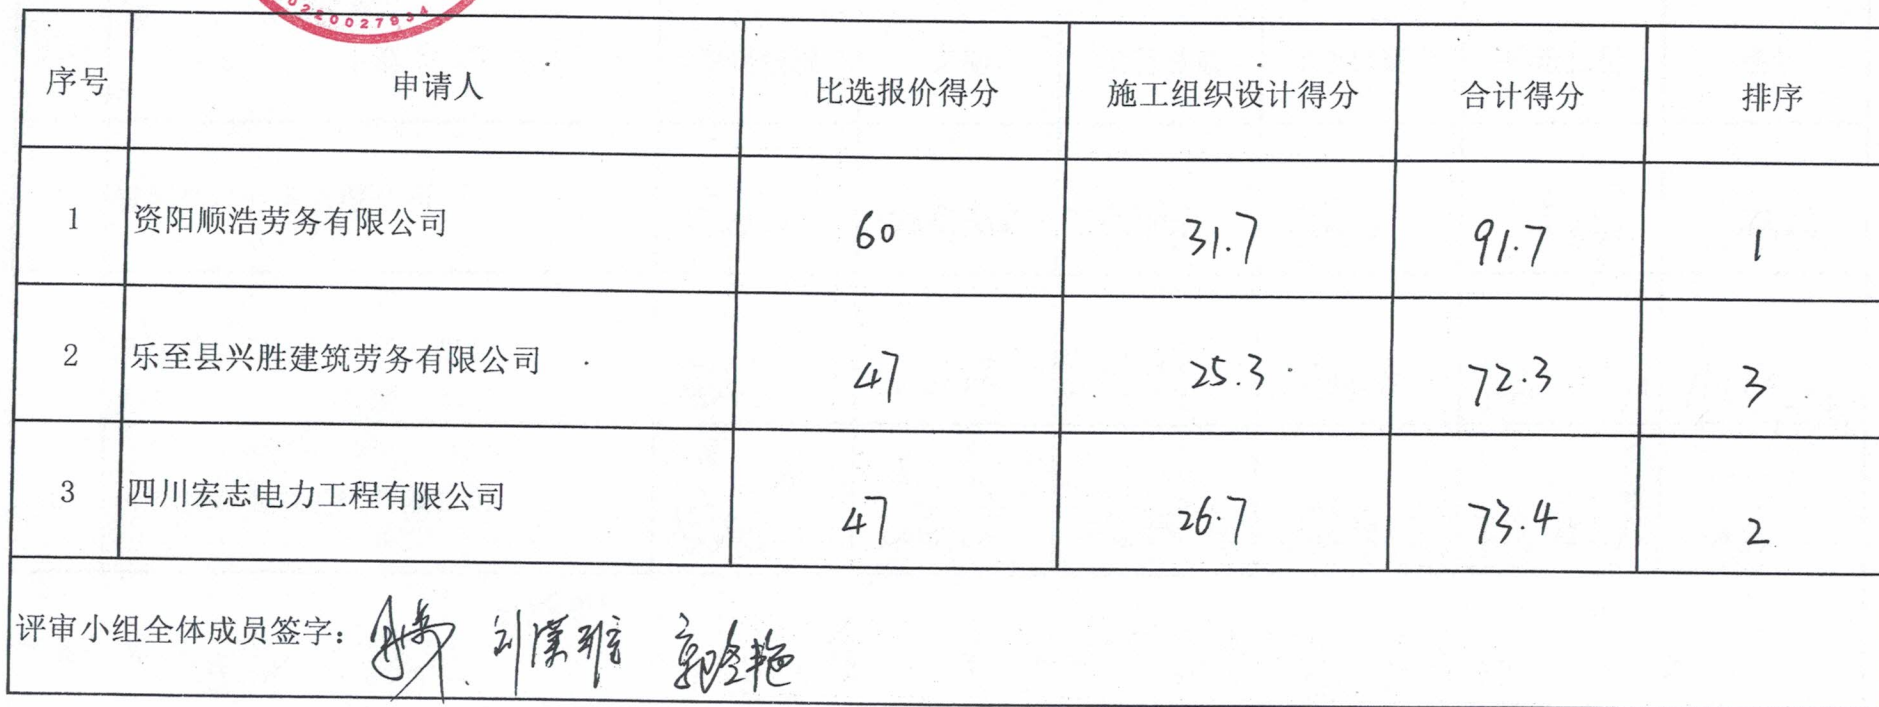 0220027934
序号 申请人 比选报价得分 施工组织设计得分 合计得分 排序
1 资阳顺浩劳务有限公司 60 31.7 91.7 1
2 乐至县兴胜建筑劳务有限公司 47 25.3 72.3 3
3 四川宏志电力工程有限公司 47 26.7 73.4 2
评审小组全体成员签字：